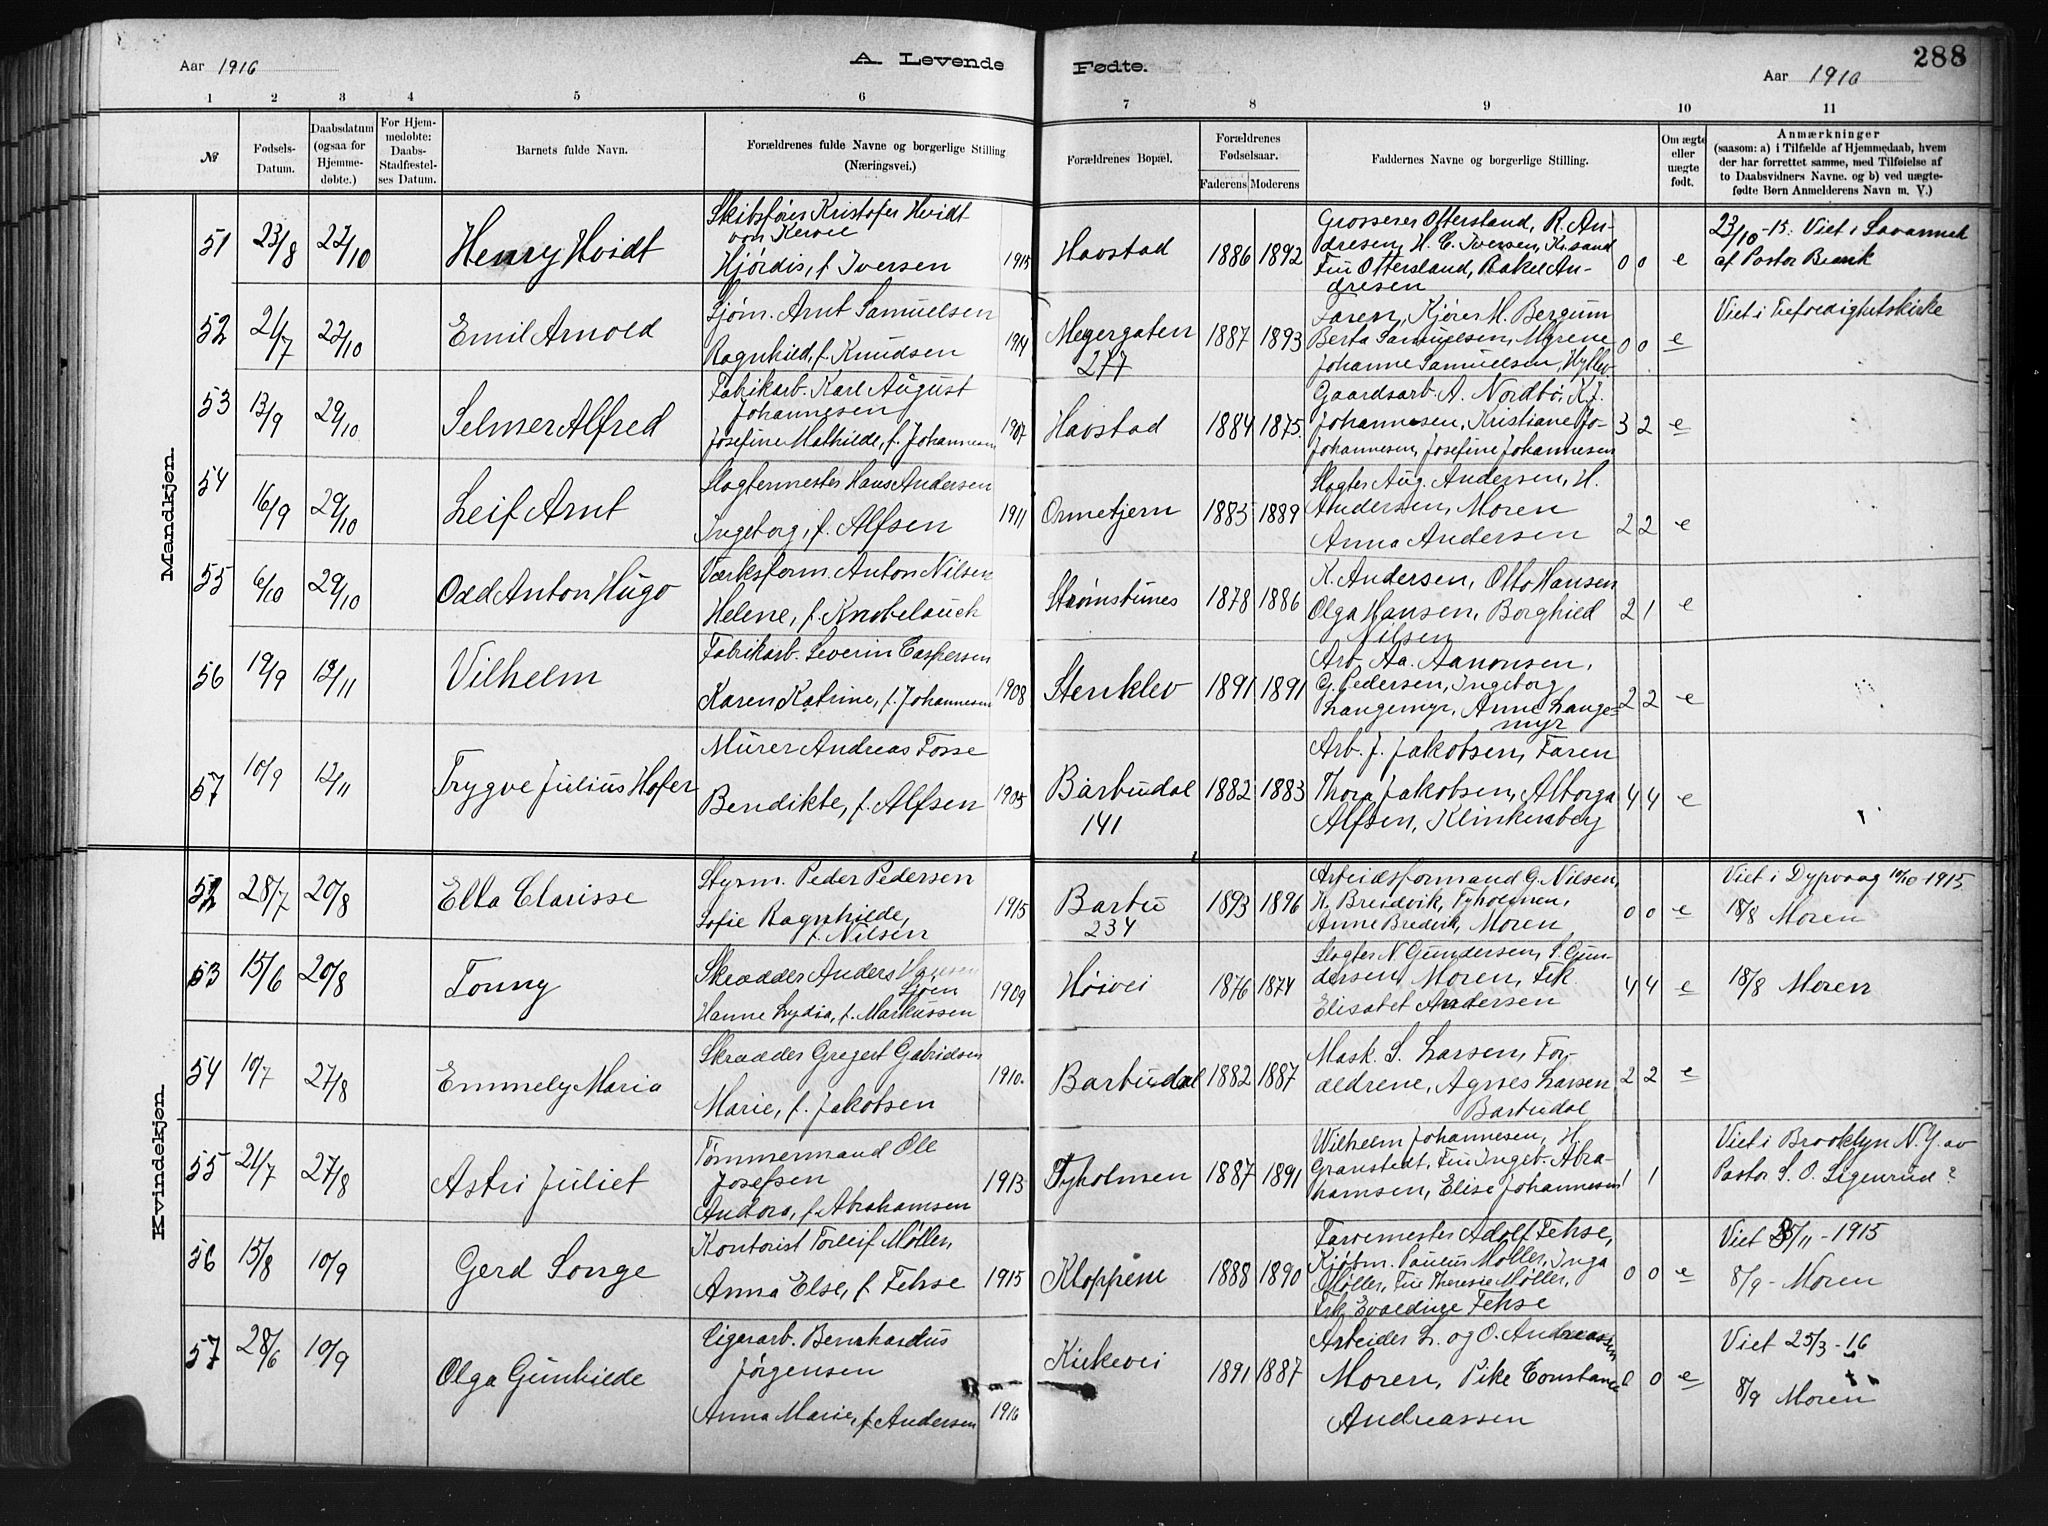 Aar 1916
A. Levende Fødte.
288
Aar 1916
1 2 3 4 5 6 7 8 9 10 11
№
Fødsels-Datum.
Daabsdatum (ogsaa for Hjemme-døbte.)
For Hjem-medøbte: Daabs-Stadfæstel-ses Datum.
Barnets fulde Navn.
Forældrenes fulde Navne og borgerlige Stilling (Næringsvei.)
Forældrenes Bopæl.
Forældrenes Fødselsaar.
Faderens Moderens
Faddernes Navne og borgerlige Stilling.
Om ægte eller uægte født.
Anmærkninger
(saasom: a) i Tilfælde af Hjemmedaab, hvem
der har forrettet samme, med Tilføielse af
to Daabsvidners Navne. og b) ved uægte-
fødte Børn Anmelderens Navn m. V.)
Mandkjøn.
51 23/8 22/10 Henry Hvidt
Skibsfører Kristofer Hvidt
Hjørdis, f. Iversen 1915
Havstad 1886 1892
Grosserer Ottersland, R. An-
dresen, H. C. Iversen, K.sand
Fru Ottersland, Rakel An-
dresen
0 0 e
23/10-15. Viet i Savannah
af Pastor
52 21/7 22/10 Emil Arnold
Sjøm. Arnt Samuelsen
Ragnhild, f. Knudsen 1914
Meyergaten 277 1887 1893
Faren, Kjører M. Bergum
Berta Samuelsen, Myrene
Johanne Samuelsen, Hyllev.
0 0 e
Viet i Trefoldighetskirke
53 13/9 29/10 Selmer Alfred
Fabrikarb. Karl August
Johannesen
Josefine Mathilde, f. Johannesen 1907
Havstad 1884 1875
Gaardsarb. A. Nordbø, K. J.
Johannesen, Kristiane Jo-
hannesen, Josefine Johannesen
3 2 e
54 16/9 29/10 Leif Arnt
Slagtermester Hans Andersen
Ingeborg, f. Alfsen 1911
Ormetjern 1883 1889
Slagter Aug. Andersen, H.
Andersen, Moren
Anna Andersen
2 2 e
55 6/10 29/10 Odd Anton Hugo
Værksform. Anton Nilsen
Helene, f. Knobelauch
Strømsbunes 1878 1886
K. Andersen, Otto Hansen
Olga Hansen, Borghild
Nilsen
2 1 e
56 19/9 12/11 Vilhelm
Fabrikarb. Severin Caspersen
Karen Katrine, f. Johannesen 1908
Stenklev 1891 1891
Arb. Aa. Aanonsen,
G. Pedersen, Ingeborg
Langemyr, Anne Lange-
myr
2 2 e
57 10/9 12/11 Trygve Julius Hofer
Murer Andreas Fosse
Bendikte, f. Alfsen 1905
Barbudal 141 1882 1883
Arb. J. Jakobsen, Faren
Thora Jakobsen, Alborga
Alfsen, Klinkenberg
4 4 e
Kvindekjøn.
52 28/7 20/8 Ella Clarisse
Styrm. Peder Pedersen
Sofie Ragnhilde,
f. Nilsen 1915
Barbu 234 1893 1896
Arbeidsformand G. Nilsen,
K. Breidvik, Tyholmen,
Anne Bredvik, Moren
0 0 e
Viet i Dypvaag 10/10 1915
18/8 Moren
53 15/6 20/8 Tonny
Skrædder Anders Hansen
Sjøen
Hanne Lydia, f. Markussen 1909
Høivei 1876 1874
Slagter N. Gundersen, S. Gun-
dersen, Moren, Frk.
Elisabet Andersen
4 4 e
18/8 Moren
54 10/7 27/8 Emmely Maria
Skrædder Gregert Gabrielsen
Marie, f. Jakobsen 1910.
Barbudal 1882 1887
Mask. S. Larsen, For-
ældrene, Agnes Larsen
Barbudal
2 2 e
55 21/7 27/8 Astri Juliet
Tømmermand Ole
Josefsen
Andora, f. Abrahamsen 1913
Tyholmen 1887 1891
Wilhelm Johannesen, H.
Granstedt, Fru Ingeb. Abra-
hamsen, Elise Johannesen
1 1
Viet i Brooklyn N.Y. av
Pastor S. O. Sigenrud?
56 15/8 10/9 Gerd Songe
Kontorist Torleif Møller,
Anna Else, f. Fehse 1915
Kloppene 1888 1890
Farvemester Adolf Fehse,
Kjøbm. Paulus Møller, Inga
Møller, Fru Theresie Møller,
Frk. Evaldine Fehse
0 0 e
Viet 25/11-1915
8/9 - Moren
57 28/6 10/9 Olga Gunhilde
Cigararb. Bernhardus
Jørgensen
Anna Marie, f. Andersen 1916
Kirkevei 1891 1887
Arbeider L. og O. Andreassen
Moren, Pike Constance
Andreassen
0 0 e
Viet 25/3-16
8/9 Moren